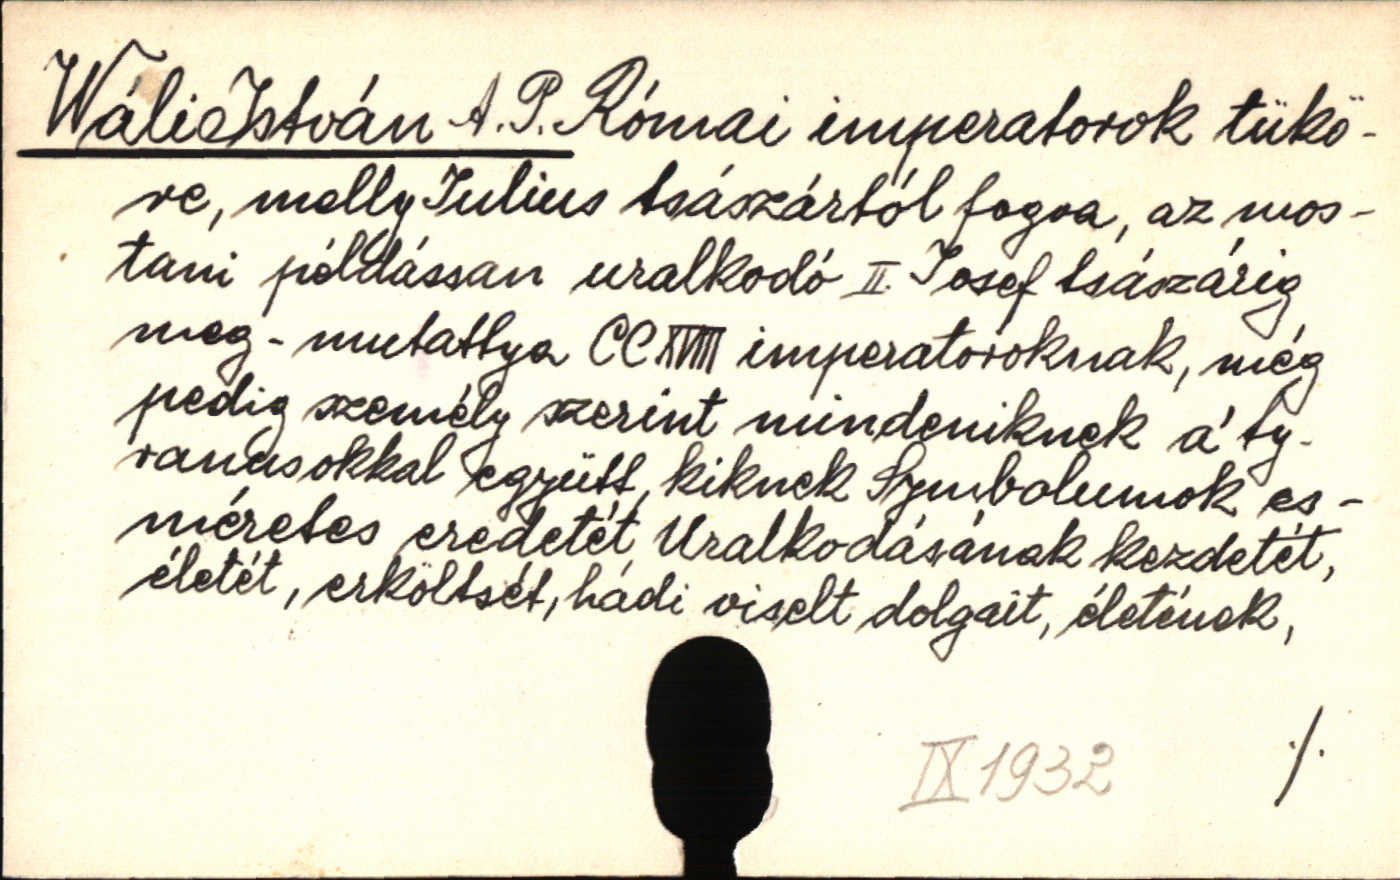 Wáli István A. P. Római imperatorok tükö-
re, melly Iulius tsászártól fogva, az mos-
tani példássan uralkodó II. Iosef tsászárig
meg-mutattya CCXVIII imperatoroknak, még
pedig személy szerint mindeniknek a' ty-
ranusokkal együtt, kiknek Symbolumok es-
méretes eredetét, Uralkodásának kezdetét,
életét, erköltsét, hádi viselt dolgait, életének,
IX 1932 ./.